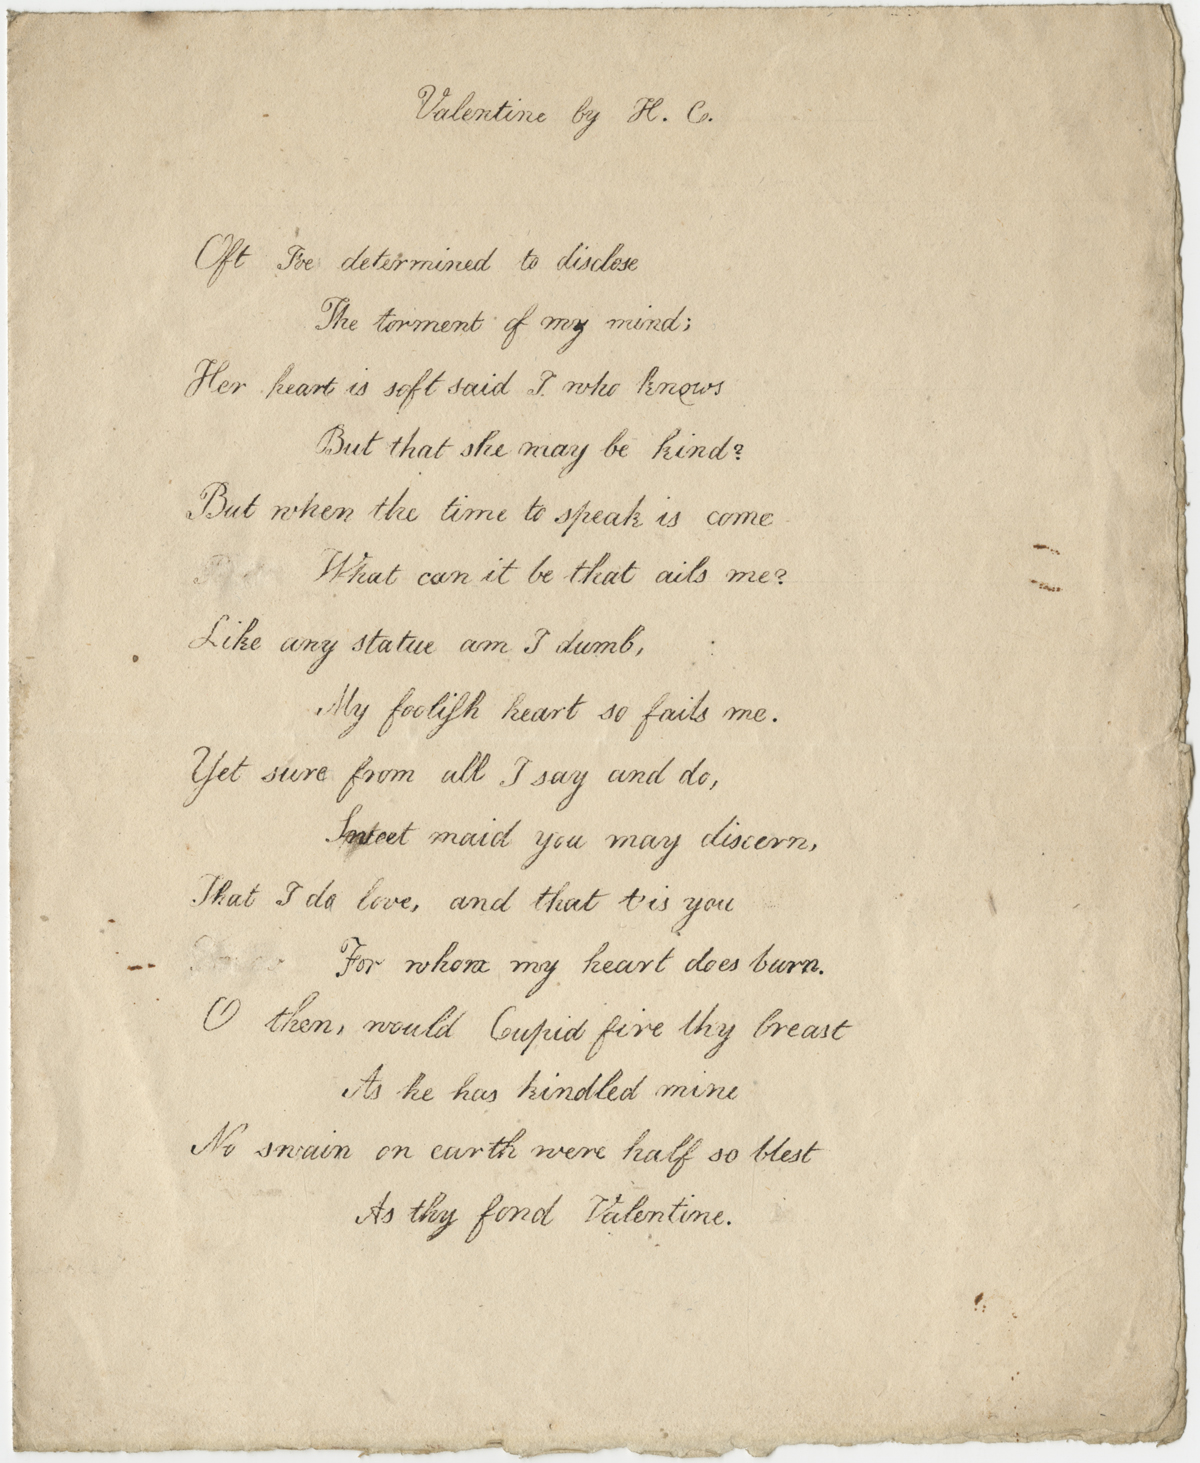 Valentine by H. C.
Oft I've determined to disclose
The torment of my mind;
Her heart is soft said I who knows
But that she may be kind?
But when the time to speak is come
What can it be that ails me?
Like any statue am I dumb,
My foolish heart so fails me.
Yet sure from all I say and do,
Sweet maid you may discern,
That I do love, and that t'is you
For whom my heart does burn.
O then, would Cupid fire thy breast
As he has kindled mine
No swain on earth were half so blest
As thy fond Valentine.